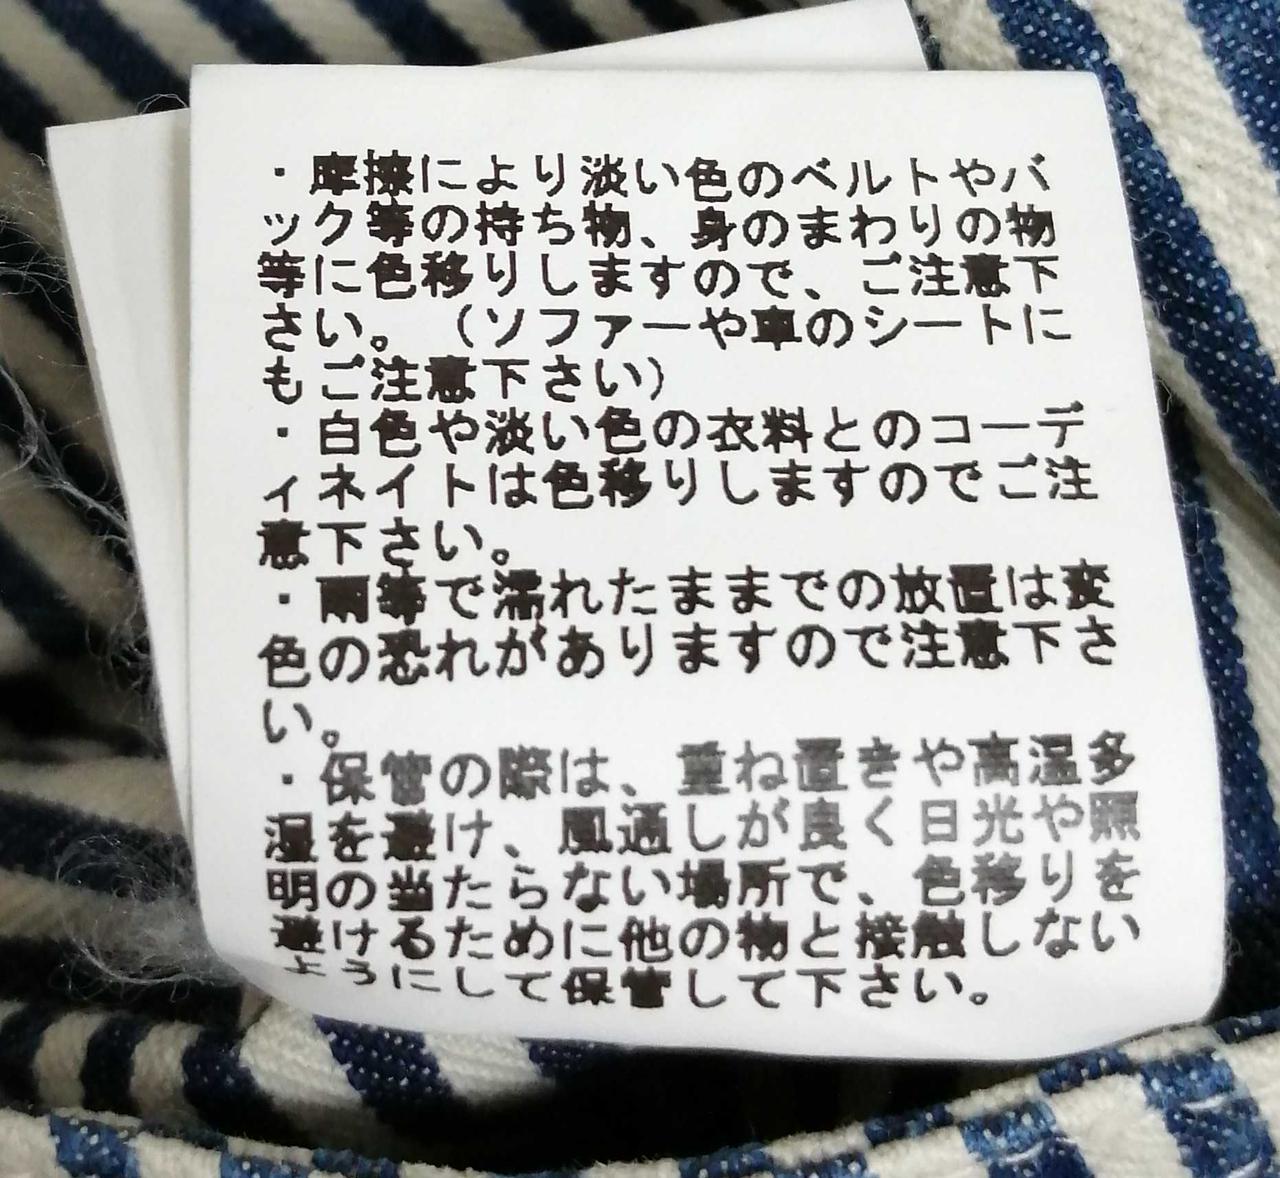 ・摩擦により淡い色のベルトやバ
ック等の持ち物、身のまわりの物
等に色移りしますので、ご注意下
さい。（ソファーや車のシートに
もご注意下さい）
・白色や淡い色の衣料とのコーデ
ィネイトは色移りしますのでご注
意下さい。
・雨等で濡れたままでの放置は変
色の恐れがありますので注意下さ
い。
・保管の際は、重ね置きや高温多
湿を避け、風通しが良く日光や照
明の当たらない場所で、色移りを
避けるために他の物と接触しない
ようにして保管して下さい。